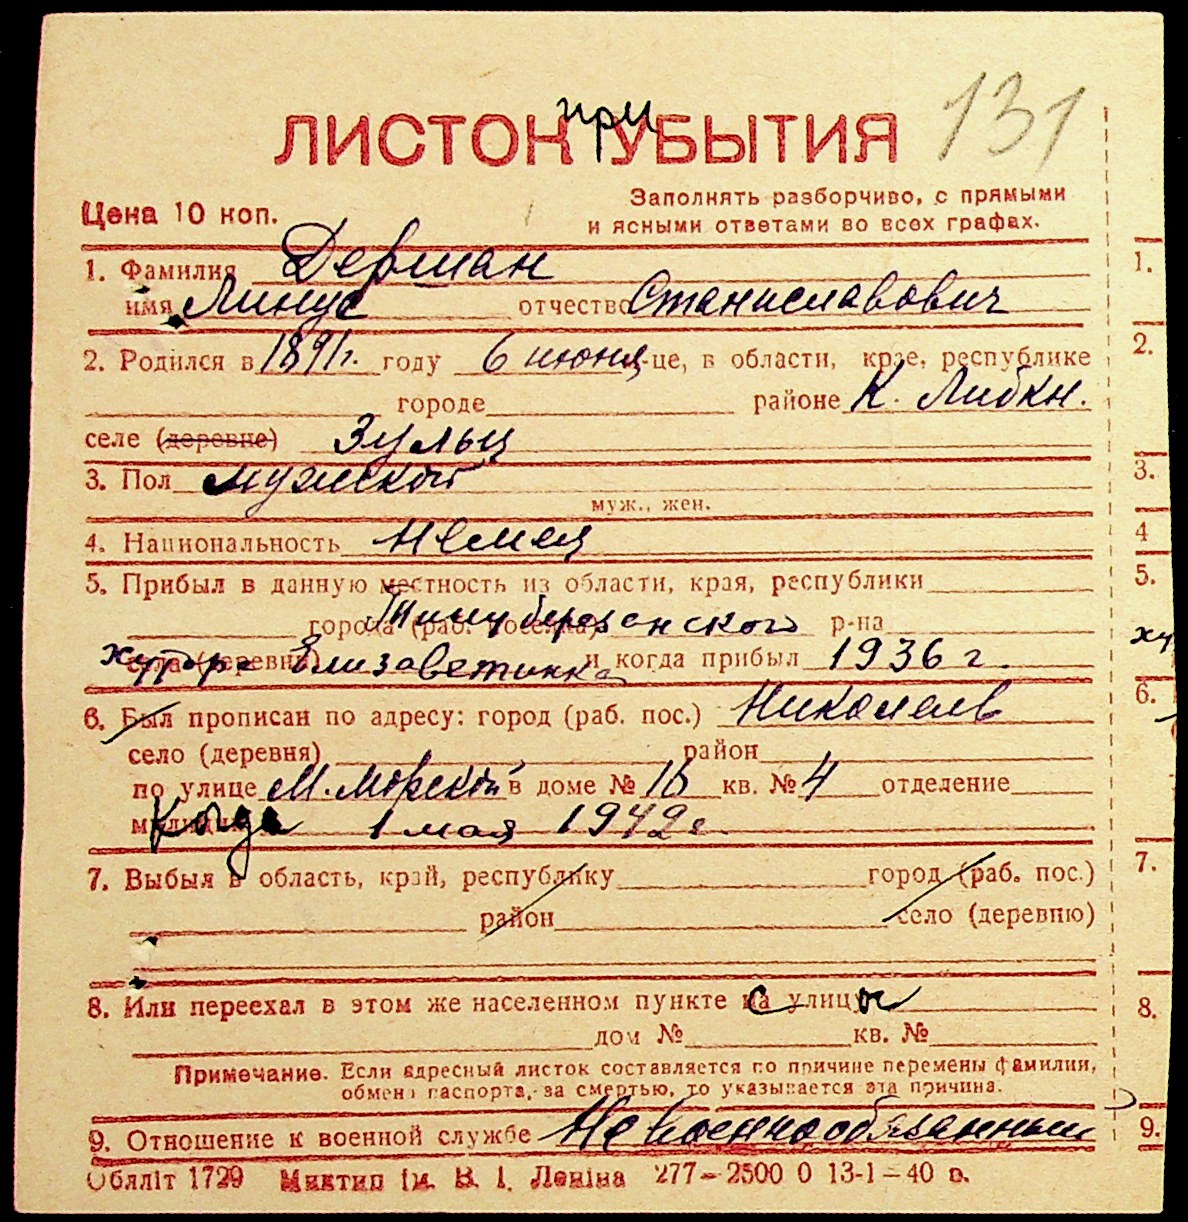 131
при
ЛИСТОК УБЫТИЯ
Цена 10 коп.
Заполнять разборчиво, с прямыми
и ясными ответами во всех графах.
1. Фамилия Дершан
имя Линус отчество Станиславович
2. Родился в 1891 г. году 6 июня -це, в области, крае, республике
городе районе К. Либкн.
селе (деревне) Зульц
3. Пол мужской
муж., жен.
4. Национальность немец
5. Прибыл в данную местность из области, края, республики
города (раб. поселка) р-на
хутора Елизаветинка и когда прибыл 1936 г.
6. Был прописан по адресу: город (раб. пос.) Николаев
село (деревня) район
по улице М. Морской в доме № 18 кв. № 4 отделение
милиции Когда 1 мая 1942 г.
7. Выбыл в область, край, республику город (раб. пос.)
район село (деревню)
8. Или переехал в этом же населенном пункте с улицы
дом № кв. №
Примечание. Если адресный листок составляется по причине перемены фамилии,
обмена паспорта, за смертью, то указывается эта причина.
9. Отношение к военной службе Не военнообязанный
Облліт 1729 Миктип ім. В. І. Леніна 277—2500 0 13-1—40 в.
1.
2.
3.
4
5.
ху
6.
7.
8.
9.